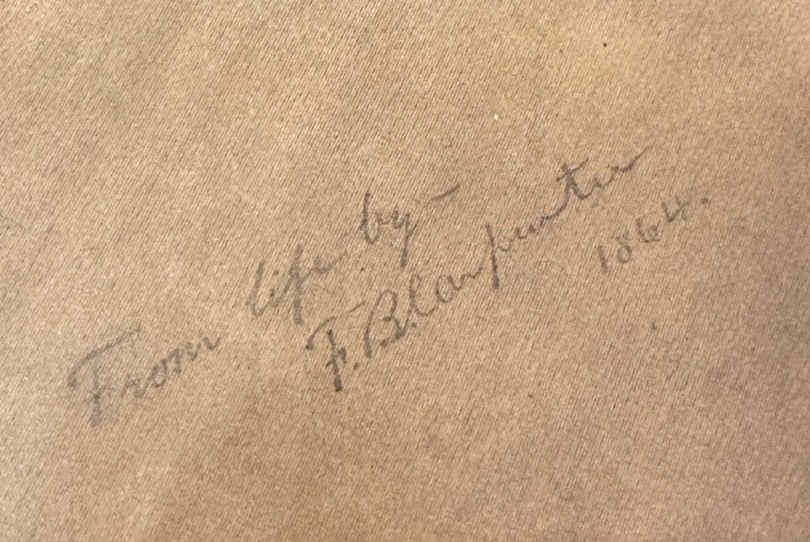 From life by –
F. B. Carpenter
1864.